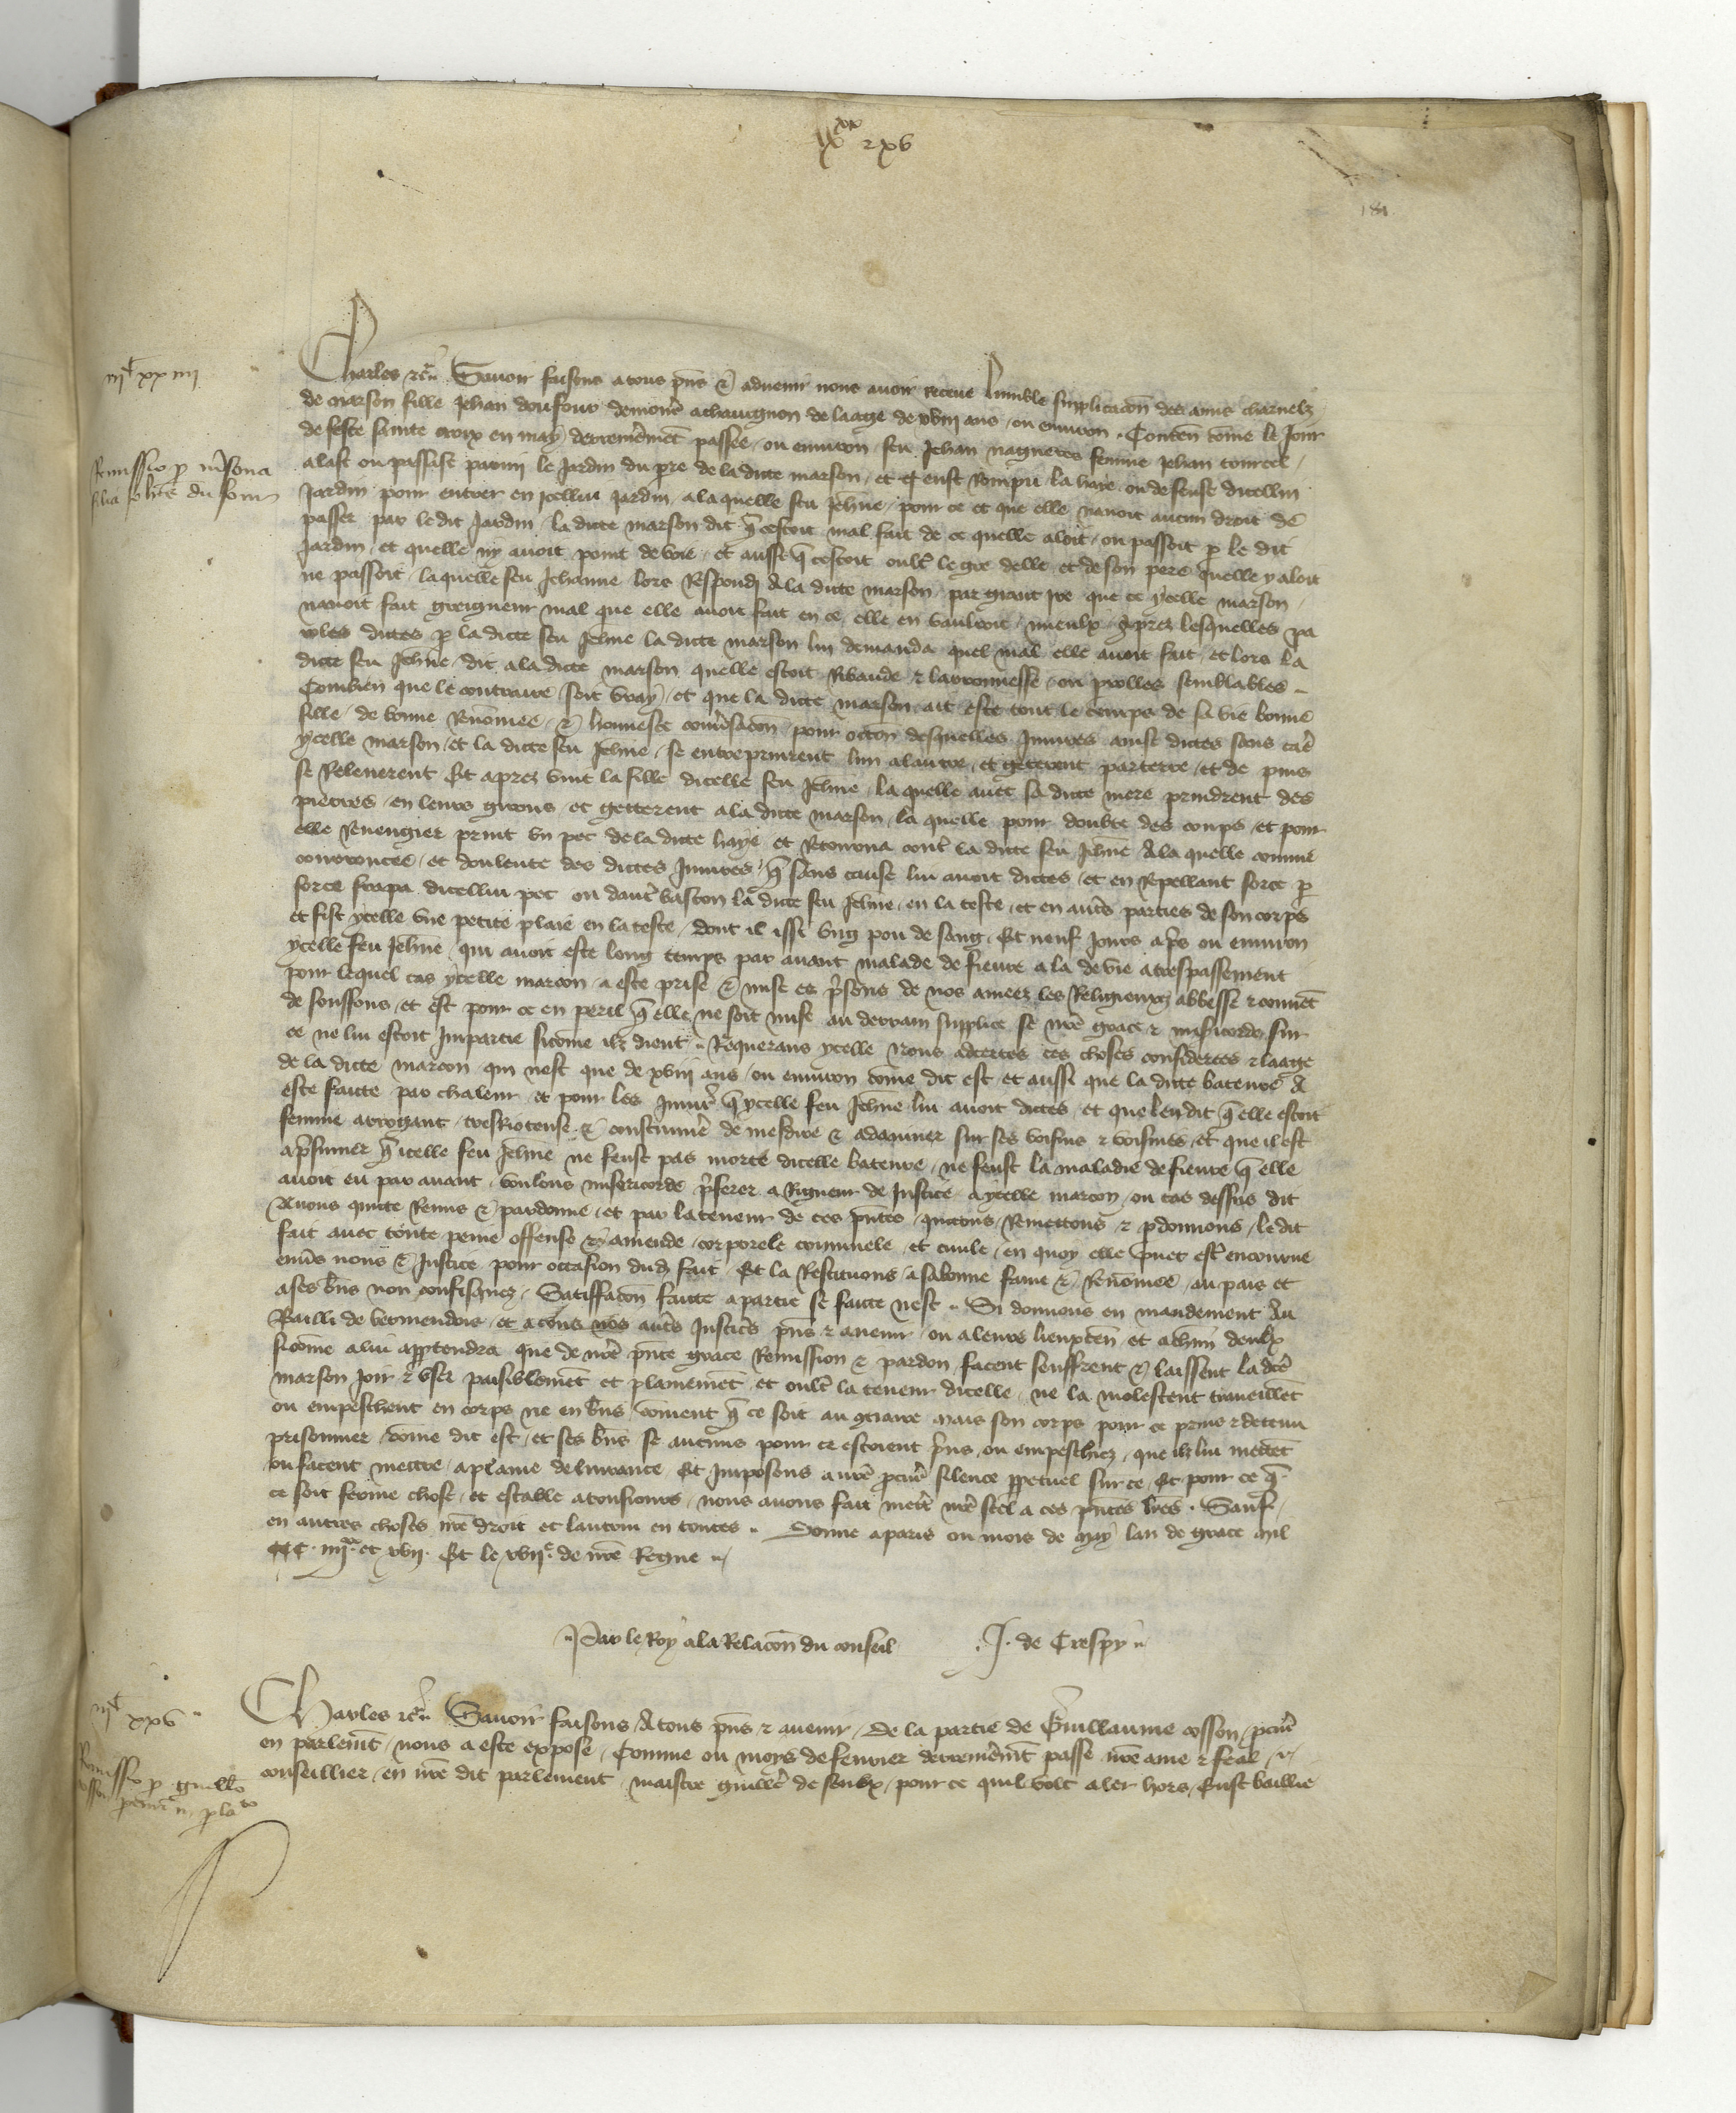 IXxx & xv
181
iijc xxiiij
Charles etc. Savoir faisons a tous pns & advenir nous avoir receue humble supplicacion des amis charnelz
de marson fille Jehan doufour demourt a chauvgnon de laage de xviij ans ou environ. Conten come le Jour
Remissio p msona
filia Johis du four
de feste sainte croix en may derrenierement passee ou environ feu Jehan nagueres femme Jehan tourcel
alast ou passast parmi le Jardin du pere de la dicte marson et eust Rompu la haye ou defense dicellui
Jardin pour entrer en Icellui Jardin a laquelle feu Jehne pour ce et que elle navoit aucun droit de
passer par le dit Jardin la dicte marson dit q cestoit mal fait de ce quelle aloit ou passoit p le dit
Jardin et quelle ny avoit point de voie et aussi q cestoit oult le gre delle et de son pere quelle y aloit
ne passoit laquelle feu Jehanne lors Respondi A la dicte marson par grant ire que ce ycelle marson
navoit fait greigneur mal que elle avoit fait en ce elle en vaulroit mieulx apres lesquelles pa
rolles dictes p la dicte feu Jehne la dicte marson lui demanda quel mal elle avoit fait et lors la
dicte feu Jehne dit a la dicte marson quelle estoit Ribaude & larronnesse ou prolles semblables
Combien que le contraire soit vray et que la dicte marson ait este tout le temps de sa vie bonne
fille de bonne Renomee & honneste conversacion pour occon desquelles Injures ainsi dictes sans cause
ycelle marson et la dicte feu Jehne se entreprinrent lun a lautre et geterent par terre et de puis
se Releverent Et apres vint la fille dicelle feu Jehne la quelle avec sa dicte mere prindrent des
pierres en leurs girons et getterent a la dicte marson la quelle pour doubte des coups et pour
elle Revengier print un pec de la dicte haye et Retourna cont la dicte feu Jehne A la quelle comme
courroucee et doulente des dictes Injures q sans cause lui avoit dictes et en Repellant force p
force frapa dicellui pec ou daut baston la dicte feu Jehne en la teste et en auts parties de son corps
et fist ycelle une petite plaie en la teste dont il issi ung pou de sang. Et neuf Jours aps ou environ
ycelle feu Jehne qui avoit este long temps par avant malade de fievre a la de vie a trespassement
pour lequel cas ycelle marcon a este prise & mise es prisons de nos amees les Religieuses abbesse & convent
de soussons et est pour ce en peril q elle ne soit mise au derrain supplice se nre grace & misericorde sur
ce ne lui estoit Impartie sicome ilz dient Requerans ycelle Nous adcertes ces choses considerees & laage
de la dicte marcon qui nest que de xviij ans ou environ come dit est et aussi que la dicte bateure A
este faicte par chaleur et pour les Injures q ycelle feu Jehne lui avoit dictes et que len dit q elle estoit
femme arrogant tresRioteuse & coustumiere de mesdire & adaquiner sur ses voisins & voisines et que il est
a presumer q icelle feu Jehne ne feust pas morte dicelle bateure ne feust la maladie de fievre q elle
avoit eu par avant voulons misericorde preferer a Rigueur de Justice a ycelle marcon ou cas dessus dit
Avons quicte Remis & pardonne et par la teneur de ces pntes quictons Remettons & pdonnons le dit
fait avec toute peine offense & amende corporele criminele et civile en quoy elle puet est encourue
envs nous & Justice pour occasion dud fait Et la Restituons a sa bonne fame & Renomee au pais et
a ses biens non confisquez. Satiffacon faicte a partie se faicte nest Si donnons en mandement Au
Bailli de vermendois et a tous nos auts Justiciers pns & avenir ou a leurs lieuxten et a chun deulx
sicome a lui apptendra que de nre pnte grace Remission & pardon facent seuffrent & laissent la dce
marson Joir & user paisiblement et plainement et oult la teneur dicelle ne la molestent traveillent
ou empeschent en corps ne en bns coment q ce soit au contraire Mais son corps pour ce prins & detenu
prisonnier come dit est et ses bns se aucuns pour ce estoient prins ou empeschiez que ilz lui mettent
ou facent mettre a plaine delivrance Et Imposons a nre procur silence ppetuel sur ce Et pour ce q
ce soit ferme chose et estable a tousjours nous avons fait mett nre seel a ces pntes lres. Sauf
en autres choses nre droit et lautrui en toutes. Donne a paris ou mois de may lan de grace mil
CCC. iiijxx et xvij. Et le xvije de nre Regne
Par le Roy a la Relacon du conseil J. de Crespy
iijc xxv
Charles etc. Savoir faisons A tous pns & avenir De la partie de Guillaume cosson pcur
en parlemt nous a este expose Comme ou moys de fevrier derrenierement passe nre ame & feal
Remissio p guillo
cosson pcuratore in parlato
conseillier en nre dit parlement maistre guille de senlx pour ce quil volt aler hors Eust baillie